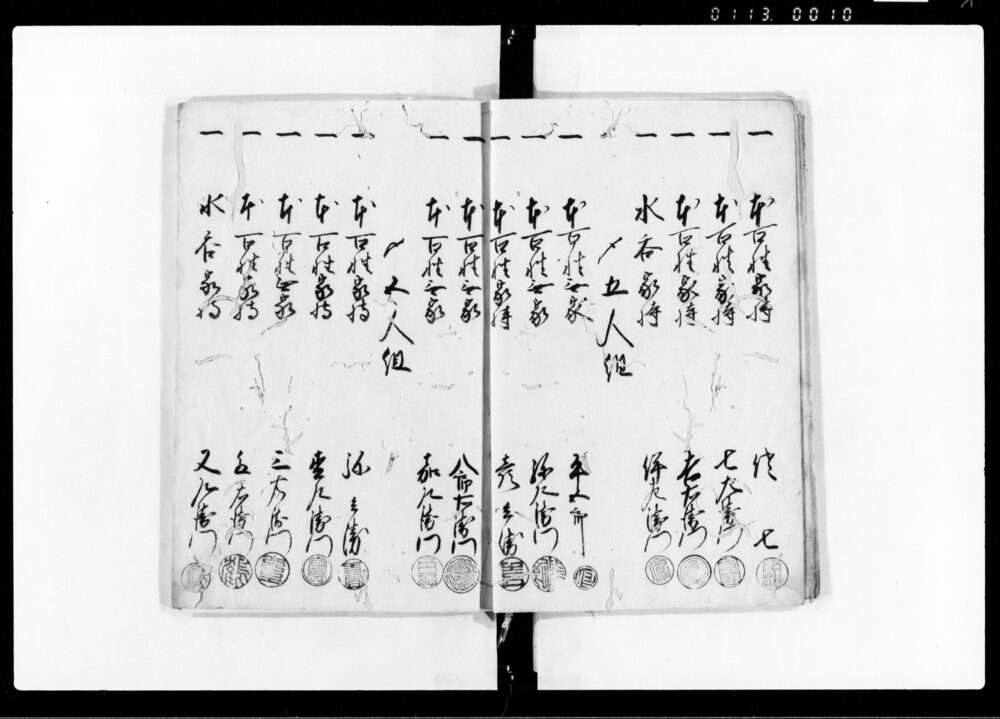 0113.0010
一 本百姓家持 伝七
一 本百姓家持 七左衛門
一 本百姓家持 吉右衛門
一 水呑家持 伊左衛門
〆五人組
一 本百姓無家 平五郎
一 本百姓無家 孫左衛門
一 本百姓家持 彦兵衛
一 本百姓無家 八郎右衛門
一 本百姓無家 嘉左衛門
〆五人組
一 本百姓家持 弥兵衛
一 本百姓家持 左衛門
一 本百姓無家 三右衛門
一 本百姓家持 右衛門
一 水呑家持 又左衛門